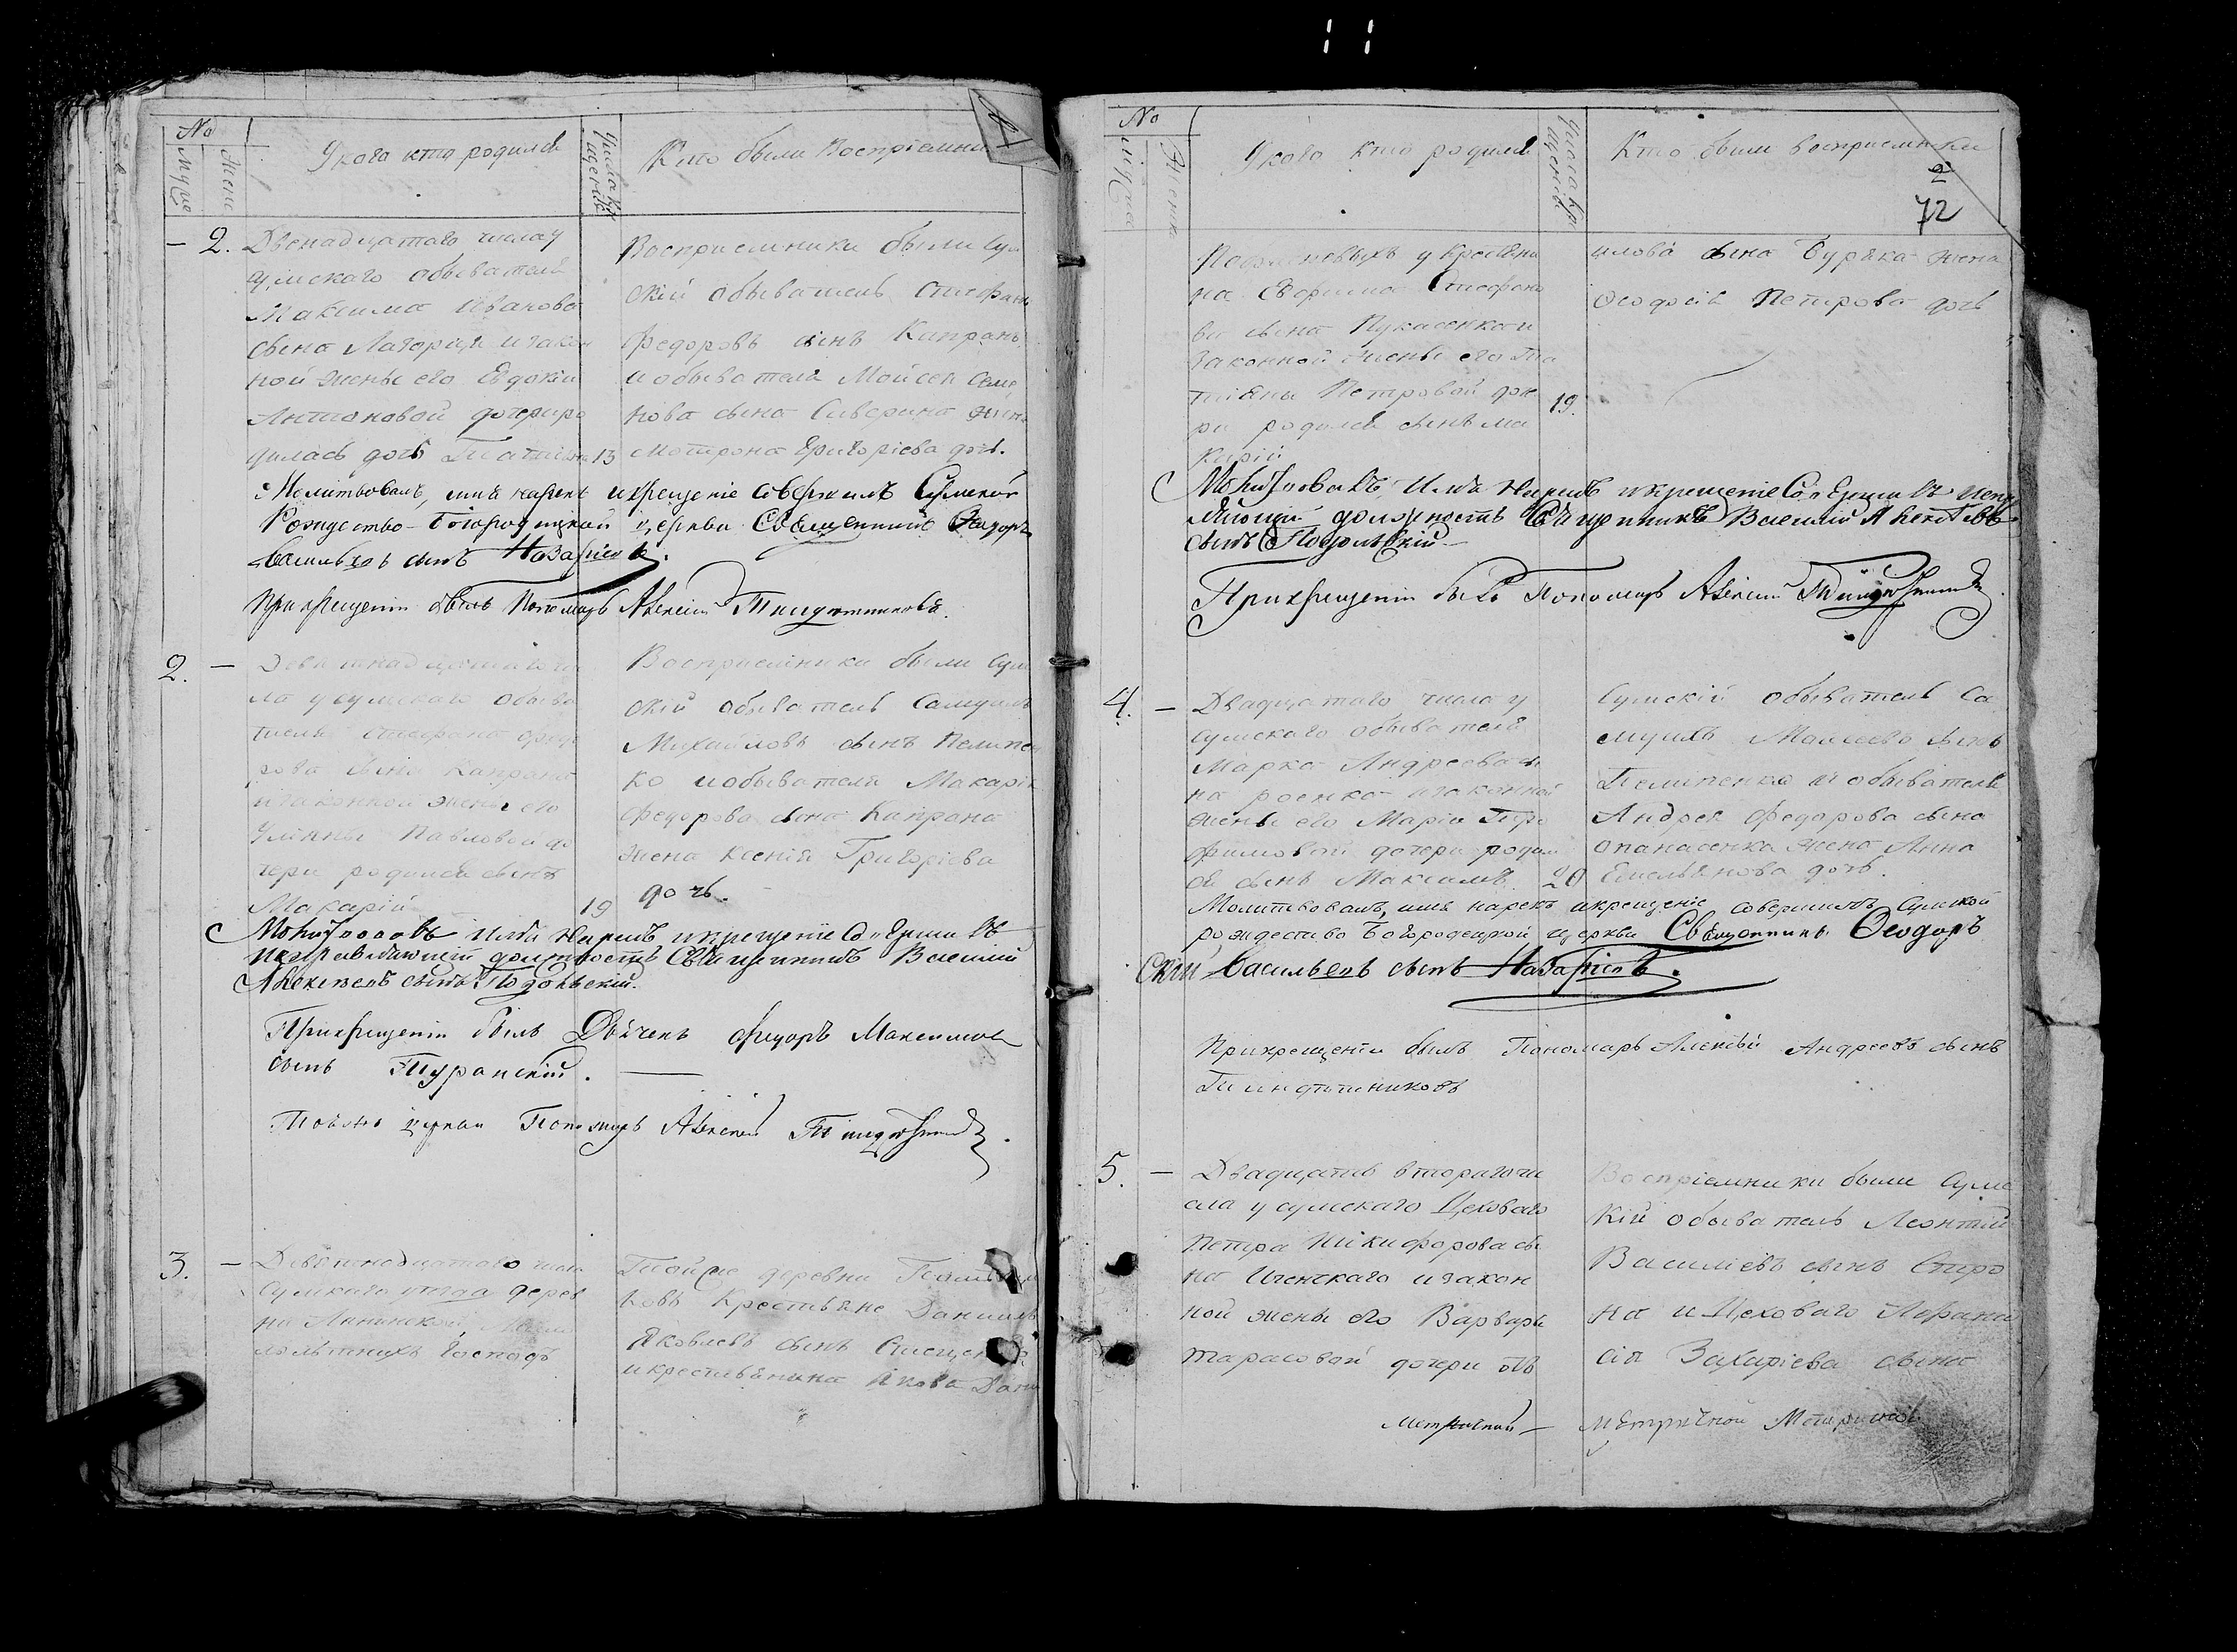 No
Муже
Жене
У кого кто родился
Числа кре
щенiя
Кто были Воспрiемни
2.
Двенадцатого числа у
сумского обывателя
Максима Иванова
сына Лагорця и закон
ной жены его Евдокiи
Антоновой дочери ро
дилась дочь Татiяна
13
Воспрiемники были сум
скiй обыватель Стефанъ
Федоровъ сынъ Капранъ
и обывателя Мойсея Семе
нова сына Сиверина жена
Мотрона Григорiева дочь.
Молитвовалъ, имя нарекъ и крещенiе совершилъ Сумской
Рождество-Богородицкой церкви Священникъ Феодоръ
Васильевъ сынъ Назарiевъ.
При крещенiи былъ Пономарь Алексiй Тимдютниковъ.
2.
Девятнадцатаго чи
сла у сумскаго обыва
теля Стефана Федо
рова сына Капрана
и законной жены его
Улянны Павловой до
чери родился сынъ
Макарiй
19
Воспрiемники были сум
скiй обыватель Самуилъ
Михайловъ сынъ Пелипен
ко и обывателя Макарiя
Федорова сына Капрана
жена Ксенiя Григорiева
дочь.
Молитвовалъ Имя Нарекъ и крещенiе Совершилъ
исправляющiй должность Священникъ Василiй
Алексеевъ сынъ Подольскiй.
При крещенiи былъ Дьячекъ Федоръ Максимов
сынъ Туранскiй.
Той же церкви Пономарь Алексей
3.
Девятнадцатого числа
Сумского уезда дерев
ни Лининской, Мало
лѣтнихъ Господъ
Той же деревни
ковъ Крестьяне Данiилъ
Яковлевъ сынъ
и крестьянина Якова Дани
No
Мужска
Женска
У кого кто родился
Числа кре
щенiя
Кто были воспрiемники
2
72
у крестьяни
на Ефрима Стефано
ва сына Лукасенка и
законной жены его Та
тiяны Петровой доче
ри родился сынъ Ма
карiй
19.
илова сына Буряка жена
Феодосiя Петрова дочь
Молитвовалъ, Имя Нарекъ и крещенiе Совершилъ исправ
ляющiй должность Священникъ Василiй Алексеевъ
сынъ Подольскiй
При крещенiи былъ Пономарь Алексiй
4.
Двадцатаго числа у
сумскаго обывателя
Марка Андреева сы
на роенка и законной
жены его Марiи Тро
фимовой дочери родил
ся сынъ Максимъ
20
Сумскiй обыватель Са
муилъ Моисеевъ сынъ
Пелипенко и обывателя
Андрея Федорова сына
Опанасенка жена Анна
Емельянова дочь.
Молитвовалъ, имя нарекъ и крещенiе совершилъ Сумской
рождество Богородецкой церкви Священникъ Феодоръ
Васильевъ сынъ Назарiевъ.
При крещенiи былъ Пономарь Алексѣй Андреевъ сынъ
Тимдютниковъ
5.
Двадцать втораго чи
сла у сумскаго Цеховаго
Петра Никифорова сы
на Иченскаго и закон
ной жены его Варвары
Тарасовой дочери
Воспрiемники были Сумс
кiй обыватель Леонтiй
Василiевъ сынъ Спиро
на и Цеховаго Афана
сiя Захарiева сына